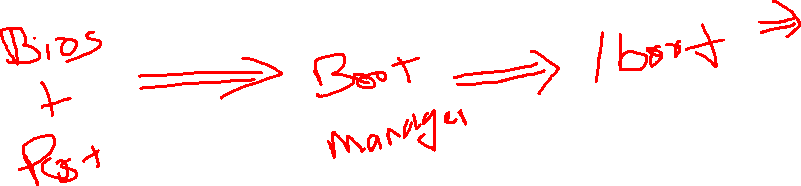 Bios
+
Post
Boot
manager
/boot